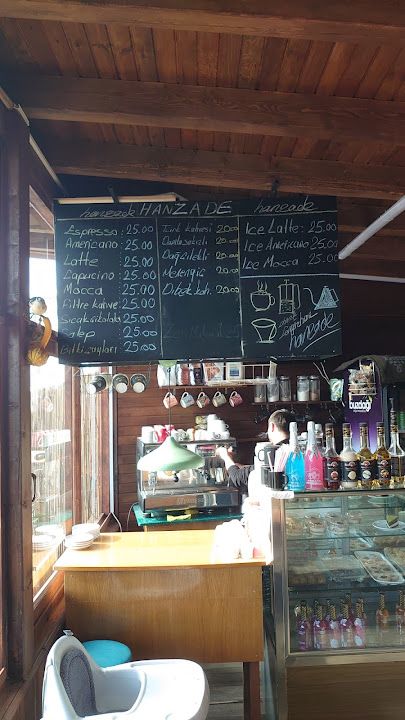 haneade HANZADE haneade
Espresso : 25.00
Americano : 25.00
Latte : 25.00
Capucino : 25.00
Mocca : 25.00
Filtre kahve : 25.00
Sıcak çikolata 25.00
Salep : 25.00
Bitki çayları : 25.00
Türk kahvesi 20.00
Damla sakızlı 20.00
Dağ çilekli 20.00
Menengiç 20.00
Dibek kah. 20.00
Ice Latte : 25.00
Ice Americano 25.00
Ice Mocca : 25.00
haneade
uludağ